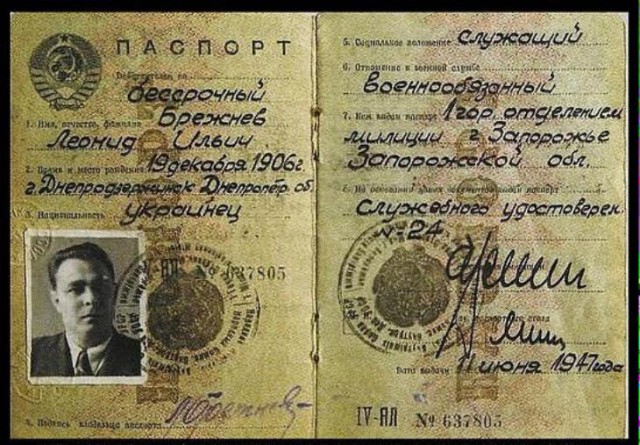 ПАСПОРТ
Действителен по
бессрочный
1. Имя, отчество, фамилия Брежнев
Леонид Ильич
2. Время и место рождения 19 декабря 1906г
г. Днепродзержинск Днепропер. об.
3. Национальность украинец
IV-ЯЛ № 637805
4. Подпись владельца паспорта
5. Социальное положение служащий
6. Отношение к военной службе
военнообязанный
7. Кем выдан паспорт 1 гор. отделением
милиции г. Запорожье
Запорожской обл.
8. На основании каких документов выдан паспорт
Служебного удостоверен
v-24
паспортного стола
Дата выдачи 11 июня 1947 года
IV-ЯЛ № 637805